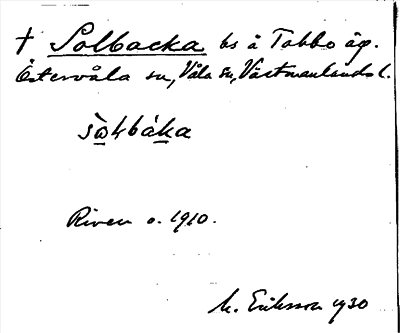 † Solbacka bs å Tobbo äg.
Östervåla sn, Våla hd, Västmanlands l.
sòɫbáka
Riven o. 1910.
M. Eriksson 1930